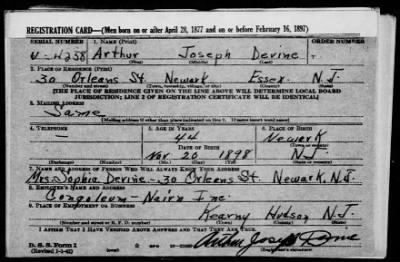 REGISTRATION CARD—(Men born on or after April 28, 1877 and on or before February 16, 1897)
SERIAL NUMBER 1. NAME (Print) ORDER NUMBER
U-4258 Arthur Joseph Devine
2. PLACE OF RESIDENCE (Print)
30 Orleans St. Newark Essex N.J.
(Number and street) (Town, township, village, or city) (County) (State)
[THE PLACE OF RESIDENCE GIVEN ON THE LINE ABOVE WILL DETERMINE LOCAL BOARD
JURISDICTION; LINE 2 OF REGISTRATION CERTIFICATE WILL BE IDENTICAL]
3. MAILING ADDRESS
Same
[Mailing address if other than place indicated on line 2. If same insert word same]
4. TELEPHONE 5. AGE IN YEARS 6. PLACE OF BIRTH
— 44 Newark
DATE OF BIRTH (Town or county)
Nov 20 1898 N.J.
(Exchange) (Number) (Mo.) (Day) (Yr.) (State or country)
7. NAME AND ADDRESS OF PERSON WHO WILL ALWAYS KNOW YOUR ADDRESS
Mrs. Sophia Devine - 30 Orleans St. Newark, N.J.
8. EMPLOYER'S NAME AND ADDRESS
Congoleum - Nairn Inc.
9. PLACE OF EMPLOYMENT OR BUSINESS
Kearny Hudson N.J.
(Number and street or R. F. D. number) (Town) (County) (State)
I AFFIRM THAT I HAVE VERIFIED ABOVE ANSWERS AND THAT THEY ARE TRUE.
D. S. S. Form 1
(Revised 4-1-42)
Arthur Joseph Devine